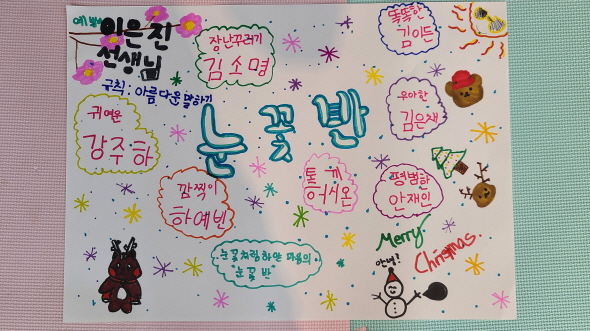 예쁜
이은진
선생님
규칙: 아름다운 말하기
장난꾸러기
김소명
똑똑한
김이든
눈꽃반
귀여운
강주하
우아한
김은채
깜찍이
하예빈
토끼
허시온
평범한
안재인
눈꽃처럼 하얀 마음의
"눈꽃반"
Merry
Christmas
안녕!